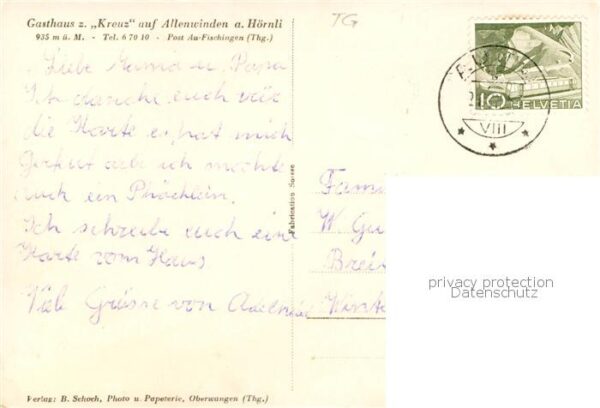 Gasthaus z. „Kreuz" auf Allenwinden a. Hörnli
935 m ü. M. - Tel. 6 70 10 - Post Au-Fischingen (Thg.)
TG
Liebe Mama u. Papa
Ich danke euch für
die Karte es hat mich
gefreut aber ich möchte
auch ein Päcklein.
Ich schreibe euch eine
Karte vom Haus
Viele Grüsse von
Fabrication Suisse
10 HELVETIA
VIII
Fami
W. Gu
Breit
Winte
privacy protection
Datenschutz
Verlag: B. Schoch, Photo u. Papeterie, Oberwangen (Thg.)